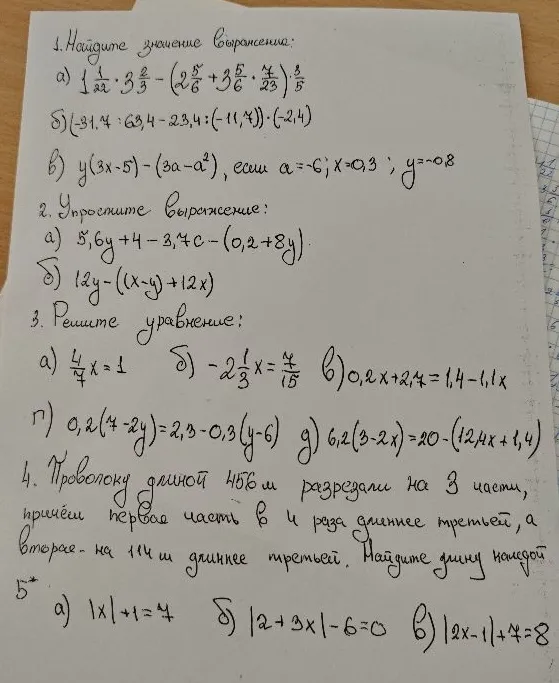 1. Найдите значение выражения:
а) 1 1/22 · 3 2/3 − (2 5/6 + 3 5/6 · 7/23) · 3/5
б) (-31,7 : 63,4 − 23,4 : (−11,7)) · (−2,4)
в) y(3x−5) − (3a−a²), если a=−6; x=0,3; y=−0,8
2. Упростите выражение:
а) 5,6y + 4 − 3,7c − (0,2 + 8y)
б) 12y − ((x−y) + 12x)
3. Решите уравнение:
а) 4/7 x = 1 б) −2 1/3 x = 7/15 в) 0,2x + 2,7 = 1,4 − 1,1x
г) 0,2(7−2y) = 2,3 − 0,3(y−6) д) 6,2(3−2x) = 20 − (12,4x + 1,4)
4. Проволоку длиной 456 м разрезали на 3 части,
причём первая часть в 4 раза длиннее третьей, а
вторая - на 114 м длиннее третьей. Найдите длину каждой
5*
а) |x| + 1 = 7 б) |2 + 3x| − 6 = 0 в) |2x−1| + 7 = 8